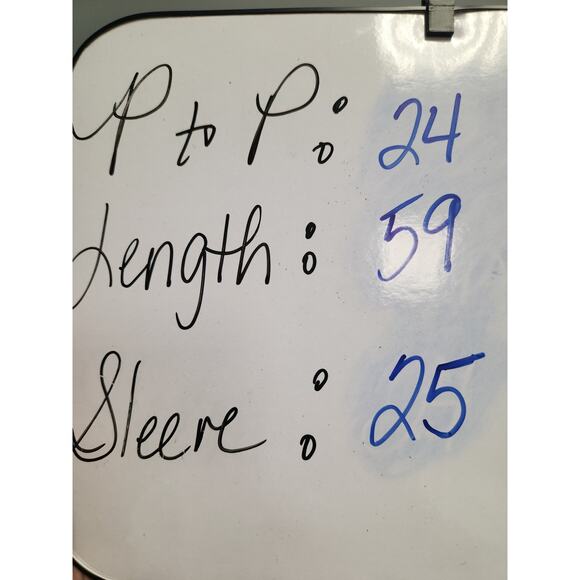 P to P: 24
Length: 59
Sleeve: 25